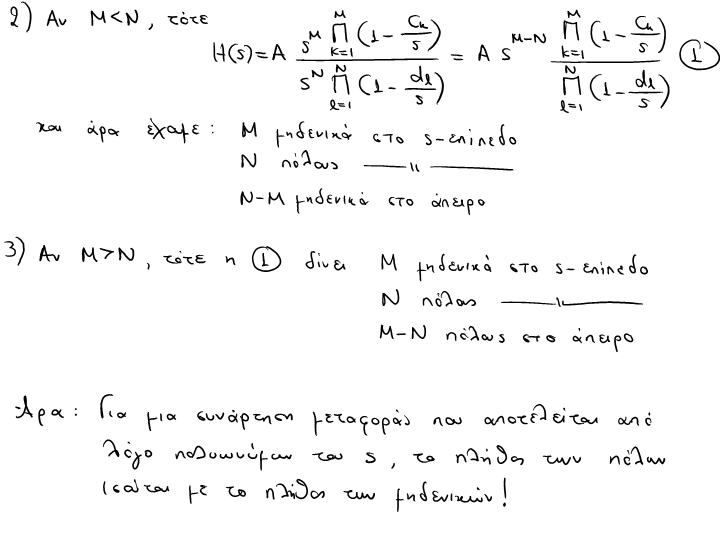 2) Αν M<N, τότε
H(s) = A \frac{s^M \prod_{k=1}^{M} (1 - \frac{c_k}{s})}{s^N \prod_{l=1}^{N} (1 - \frac{d_l}{s})} = A s^{M-N} \frac{\prod_{k=1}^{M} (1 - \frac{c_k}{s})}{\prod_{l=1}^{N} (1 - \frac{d_l}{s})} ①
και άρα έχουμε: M μηδενικά στο s-επίπεδο
N πόλους ——〃——
N-M μηδενικά στο άπειρο
3) Αν M>N, τότε η ① δίνει M μηδενικά στο s-επίπεδο
N πόλους ——〃——
M-N πόλους στο άπειρο
Άρα: Για μια συνάρτηση μεταφοράς που αποτελείται από
λόγο πολυωνύμων του s, το πλήθος των πόλων
ισούται με το πλήθος των μηδενικών!